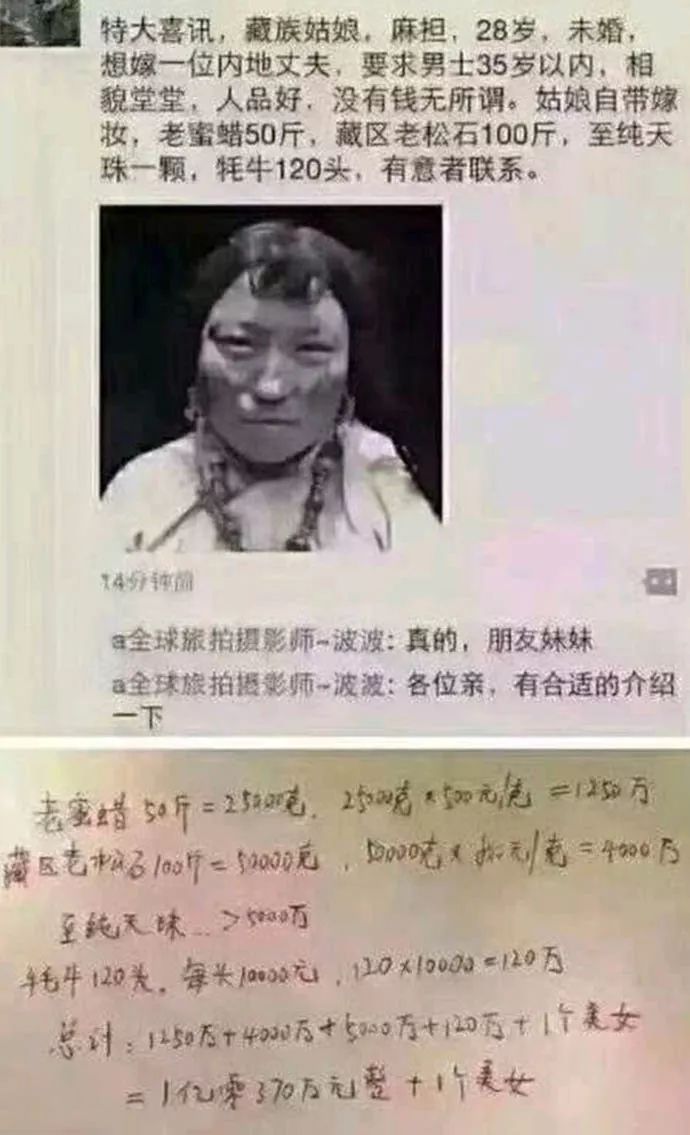 特大喜讯，藏族姑娘，麻担，28岁，未婚，
想嫁一位内地丈夫，要求男士35岁以内，相
貌堂堂，人品好，没有钱无所谓。姑娘自带嫁
妆，老蜜蜡50斤，藏区老松石100斤，至纯天
珠一颗，牦牛120头，有意者联系。
14分钟前
a全球旅拍摄影师-波波：真的，朋友妹妹
a全球旅拍摄影师-波波：各位亲，有合适的介绍
一下
老蜜蜡50斤=25000克，25000克×500元/克=1250万
藏区老松石100斤=50000克，50000克×800元/克=4000万
至纯天珠...>5000万
牦牛120头，每头10000元，120×10000=120万
总计：1250万+4000万+5000万+120万+1个美女
=1亿零370万元整+1个美女